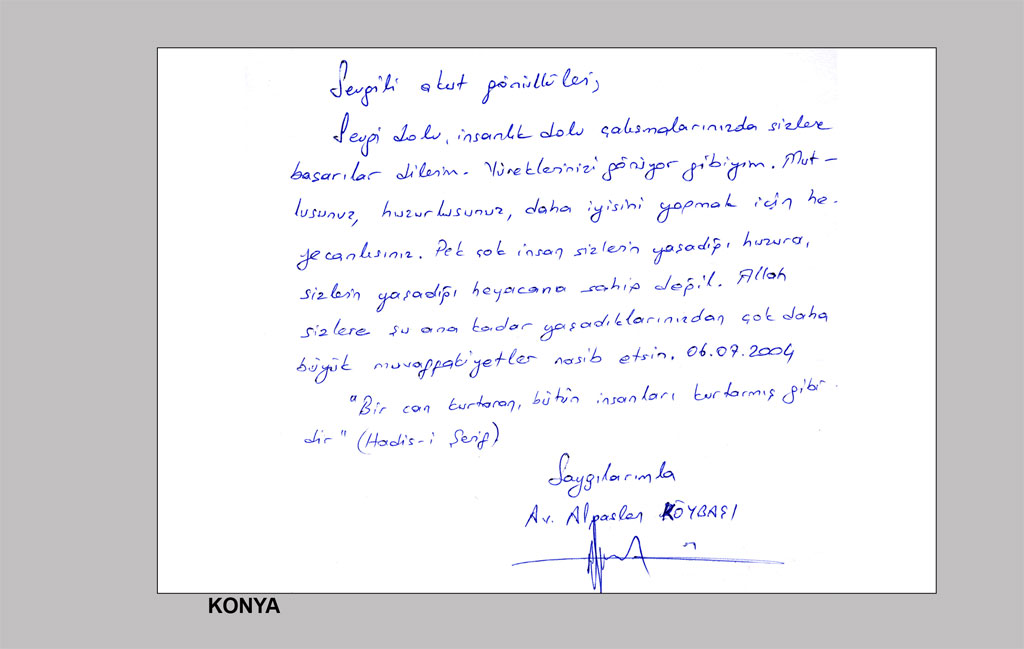 Sevgili akut gönüllüleri,
Sevgi dolu, insanlık dolu çalışmalarınızda sizlere
başarılar dilerim. Yüreklerinizi görüyor gibiyim. Mut-
lusunuz, huzurlusunuz, daha iyisini yapmak için he-
yecanlısınız. Pek çok insan sizlerin yaşadığı huzura,
sizlerin yaşadığı heyacana sahip değil. Allah
sizlere şu ana kadar yaşadıklarınızdan çok daha
büyük muvaffakiyetler nasib etsin. 06.07.2004
"Bir can kurtaran, bütün insanları kurtarmış gibi-
dir" (Hadis-i Şerif)
Saygılarımla
Av. Alpaslan KÖYBAŞI
KONYA